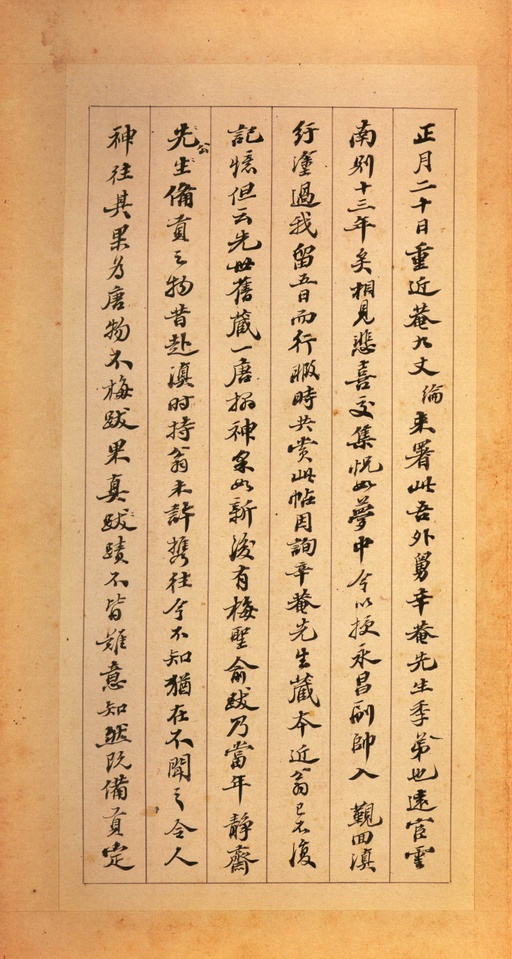 正月二十日重近菴九丈綸來署此吾外舅辛菴先生季弟也遠宦雲
南別十三年矣相見悲喜交集怳如夢中今以授永昌副帥入覲回滇
紆塗過我留五日而行暇時共賞此帖因詢辛菴先生藏本近翁已不復
記憶但云先世舊藏一唐搨神采如新後有梅聖俞跋乃當年靜齋
先公生備貢之物昔赴滇時持翁未許携往今不知猶在不聞之令人
神往其果為唐物不梅跋果真跋蹟不皆難意知然既備貢定